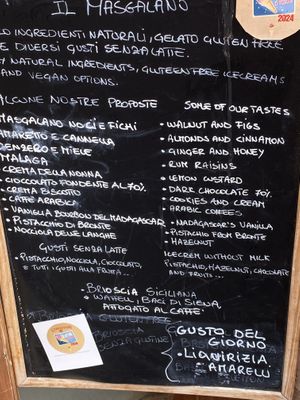 IL MASGALANO
LO INGREDIENTI NATURALI, GELATO GLUTEN FREE
E DIVERSI GUSTI SENZA LATTE.
Y NATURAL INGREDIENTS, GLUTEEN FREE ICECREAMS
AND VEGAN OPTIONS.
ALCUNE NOSTRE PROPOSTE
MASGALANO NOCI E FICHI
AMARETTO E CANNELLA
ZENZERO E MIELE
MALAGA
CREMA DELLA NONNA
CIOCCOLATO FONDENTE AL 70%
CREMA BISCOTTO
CAFFE ARABICO
VANIGLIA BOURBON DEL MADAGASCAR
PISTACCHIO DI BRONTE
NOCCIOLA DELLE LANGHE
GUSTI SENZA LATTE
PISTACCHIO, NOCCIOLA, CIOCCOLATO
E TUTTI I GUSTI ALLA FRUTTA...
SOME OF OUR TASTES
WALNUT AND FIGS
ALMONDS AND CINNAMON
GINGER AND HONEY
RUM RAISINS
LEMON CUSTARD
DARK CHOCOLATE 70%
COOKIES AND CREAM
ARABIC COFFEES
MADAGASCAR'S VANILLA
PISTACHIO FROM BRONTE
HAZELNUT
ICECREM WITHOUT MILK
PISTACHIO, HAZELNUT, CHOCOLATE
AND FRUITS...
BRIOSCIA SICILIANA
WAFFELL, BACI DI SIENA,
AFFOGATO AL CAFFE'
GUSTO DEL
GIORNO
LIQUIRIZIA
AMARELLI
2024